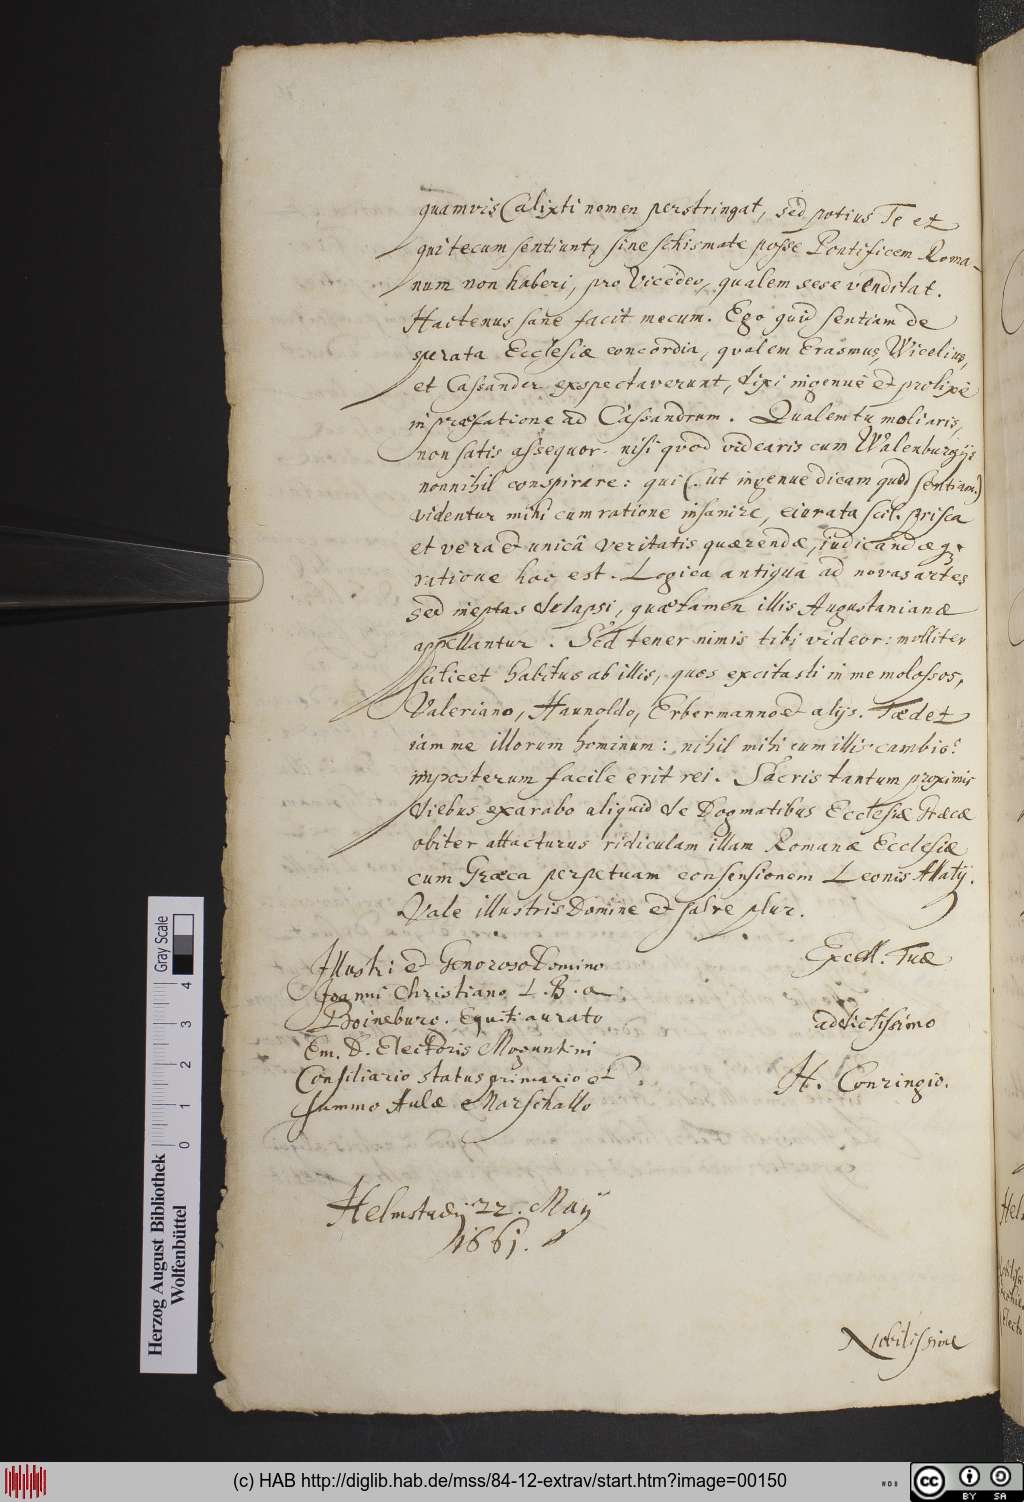 quamvis Calixti nomen perstringat, sed potius Te et
qui tecum sentiunt, sine schismate posse Pontificem Roma-
num non haberi, pro Vicedeo, qualem sese venditat.
Hactenus sane facit mecum. Ego quid sentiam de
sperata Ecclesiæ concordia, qualem Erasmus, Wicelius,
et Cassander exspectaverunt, dixi ingenuè et prolixè
in præfatione ad Cassandrum. Qualem tu moliaris,
non satis assequor. nisi quod videaris cum Walenburgijs
nonnihil conspirare: qui (ut ingenue dicam quod sentiam)
videntur mihi cum ratione insanire, eiurata scil. prisca
et vera et unicâ veritatis quærendæ, iudicandæq;
ratione hoc est. Logica antiqua ad novas artes
sed ineptas delapsi, quæ tamen illis Augustanianæ
appellantur. Sed tener nimis tibi videor: molliter
scilicet habitus ab illis, quos excitasti in me molossos,
Valeriano, Haunoldo, Erbermanno et alijs. Tædet
iam me illorum hominum: nihil mihi cum illis cambio:
imposterum facile erit rei. Sacris tantum proximis
diebus exarabo aliquid de Dogmatibus Ecclesiæ Græcæ
obiter attacturus ridiculam illam Romanæ Ecclesiæ
cum Græca perpetuam consensionem Leonis Allatij.
Vale illustris Domine et salve plur.
Excell. Tuæ
addictissimo
H. Conringio.
Illustri et Generoso Domino
Joanni Christiano L. B. a
Boineburg. Equiti aurato
Em. D. Electoris Moguntini
Consiliario status primario et
summo Aulæ Marschallo
Helmstadij 22. Maij
1661.
Nobilissime
Herzog August Bibliothek
Wolfenbüttel
Gray Scale
0 1 2 3 4
(c) HAB http://diglib.hab.de/mss/84-12-extrav/start.htm?image=00150
cc BY SA